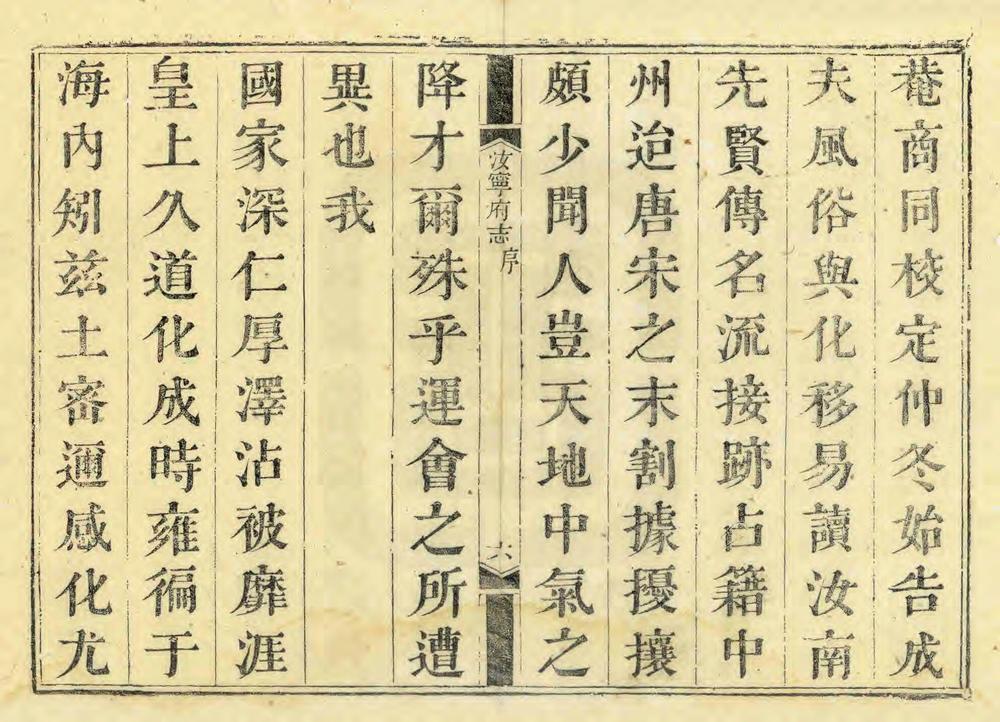 菴商同校定仲冬始告成
夫風俗與化移易讀汝南
先賢傳名流接跡占籍中
州迨唐宋之末割據擾攘
頗少聞人豈天地中氣之
汝寧府志
序
六
降才爾殊乎運會之所遭
異也我
國家深仁厚澤沾被靡涯
皇上久道化成時雍徧于
海内矧兹土密邇感化尤